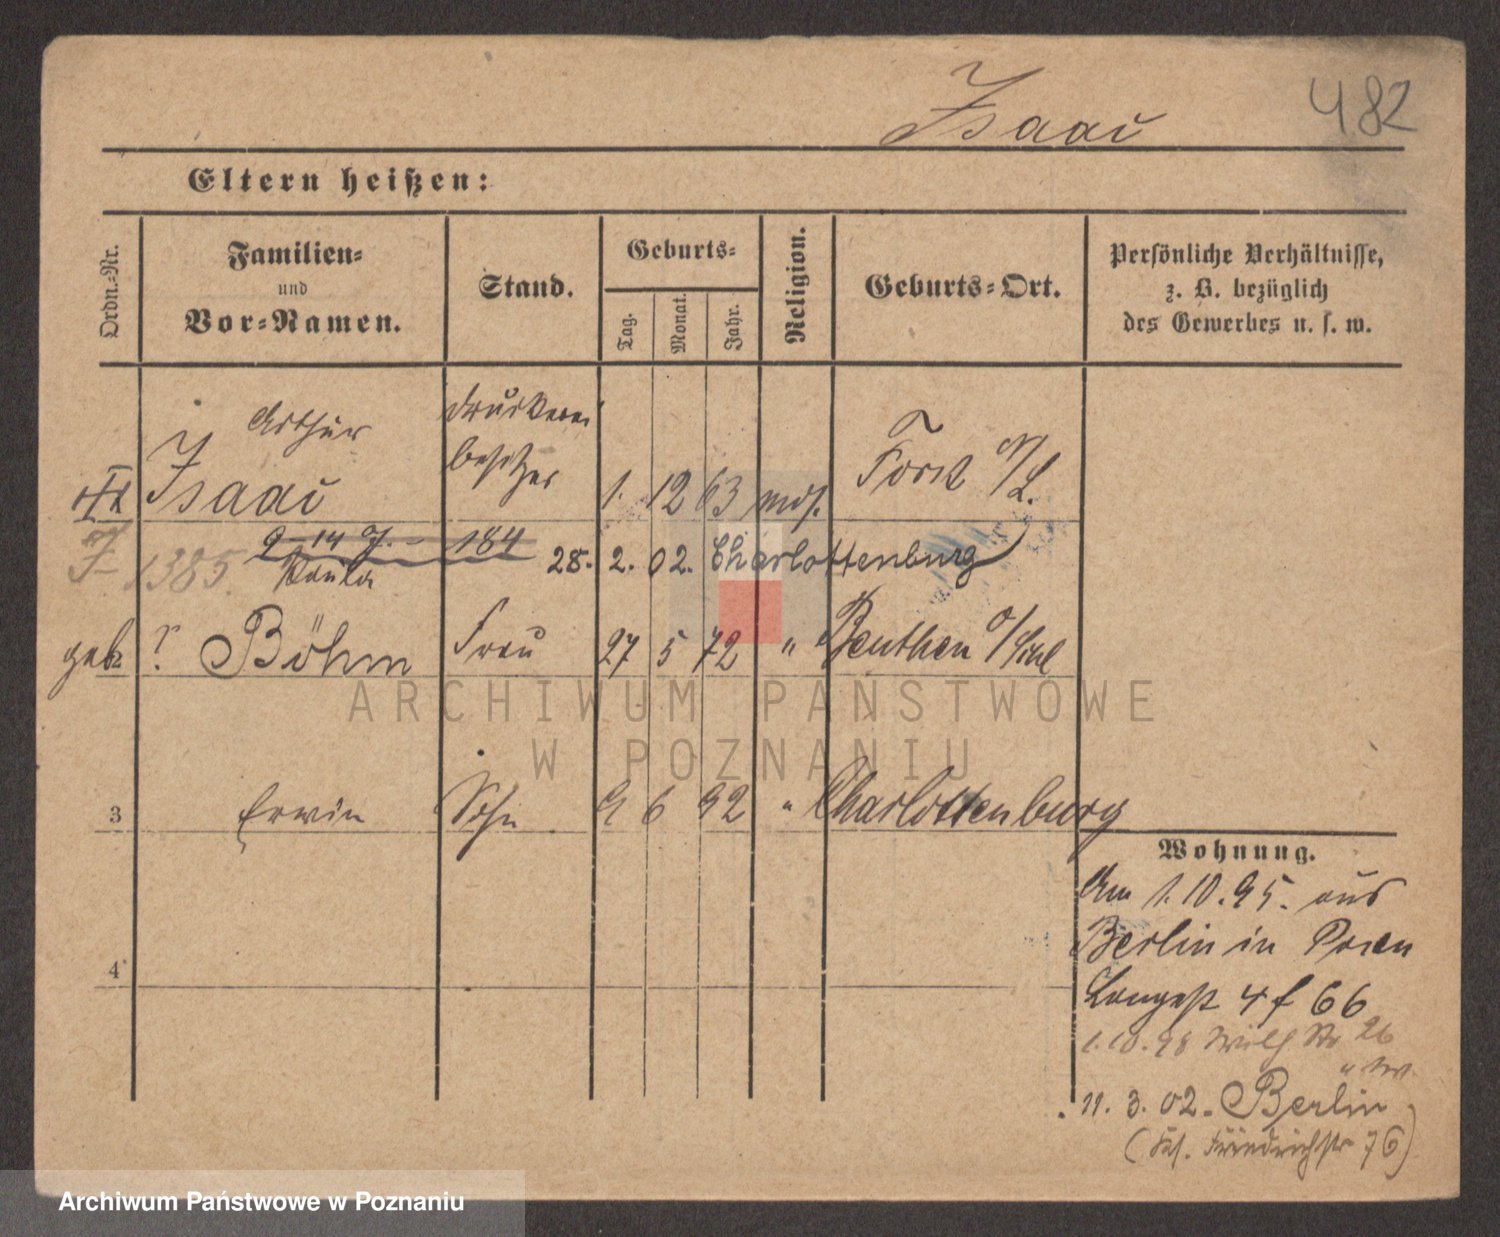 Isaac
482
Eltern heißen:
Ordn.-Nr.
Familien-
und
Vor-Namen.
Stand.
Geburts-
Tag.
Monat.
Jahr.
Religion.
Geburts-Ort.
Persönliche Verhältnisse,
z. B. bezüglich
des Gewerbes u. s. w.
Arthur
Isaac
Druckerei
besitzer
1. 12 63 mos.
Forst N/L.
1385.
9-14 J. - 184
28. 2. 02. Charlottenburg
Paula
geb ? Böhm
Frau
27 5 72 "
Beuthen O/Schl
3
Erwin
Sohn
9 6 92 "
Charlottenburg
4
Wohnung.
Am 1.10.95. aus
Berlin in Posen
Langestr 4 f 66
1.10.98 Wilh Str 26
11. 3. 02. Berlin
Friedrichstr 76)
ARCHIWUM PAŃSTWOWE
W POZNANIU
Archiwum Państwowe w Poznaniu